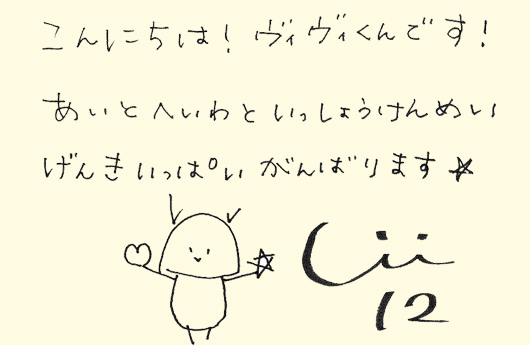 こんにちは! ヴィヴィくんです!
あいとへいわといっしょうけんめい
げんきいっぱい がんばります☆
12